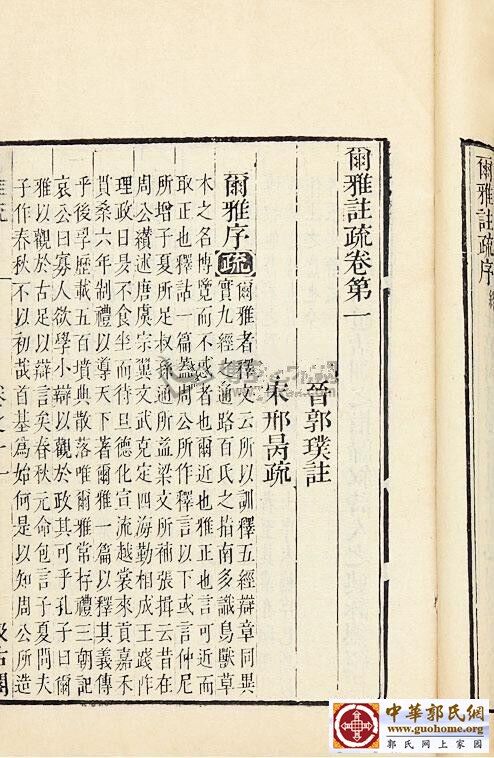 爾雅註疏序
爾雅註疏卷第一
晉郭璞註
宋邢昺疏
爾雅序 疏 爾雅者釋文云所以訓釋五經辯章同異
實九經之通路百氏之指南多識鳥獸草
木之名博覽而不惑者也爾近也雅正也言可近而
取正也釋詁一篇蓋周公所作釋言以下或言仲尼
所增子夏所足叔孫通所益梁文所補張揖云昔在
周公纘述唐虞宗翼文武克定四海勤相成王踐阼
理政日昃不食坐而待旦德化宣流越裳來貢嘉禾
貫桑六年制禮以導天下著爾雅一篇以釋其義傳
乎後孠歷載五百墳典散落唯爾雅常存禮三朝記
哀公曰寡人欲學小辯以觀於政其可乎孔子曰爾
雅以觀於古足以辯言矣春秋元命包言子夏問夫
子作春秋不以初哉首基為始何是以知周公所造
中華郭氏網
www.guohome.org
郭氏網上家園